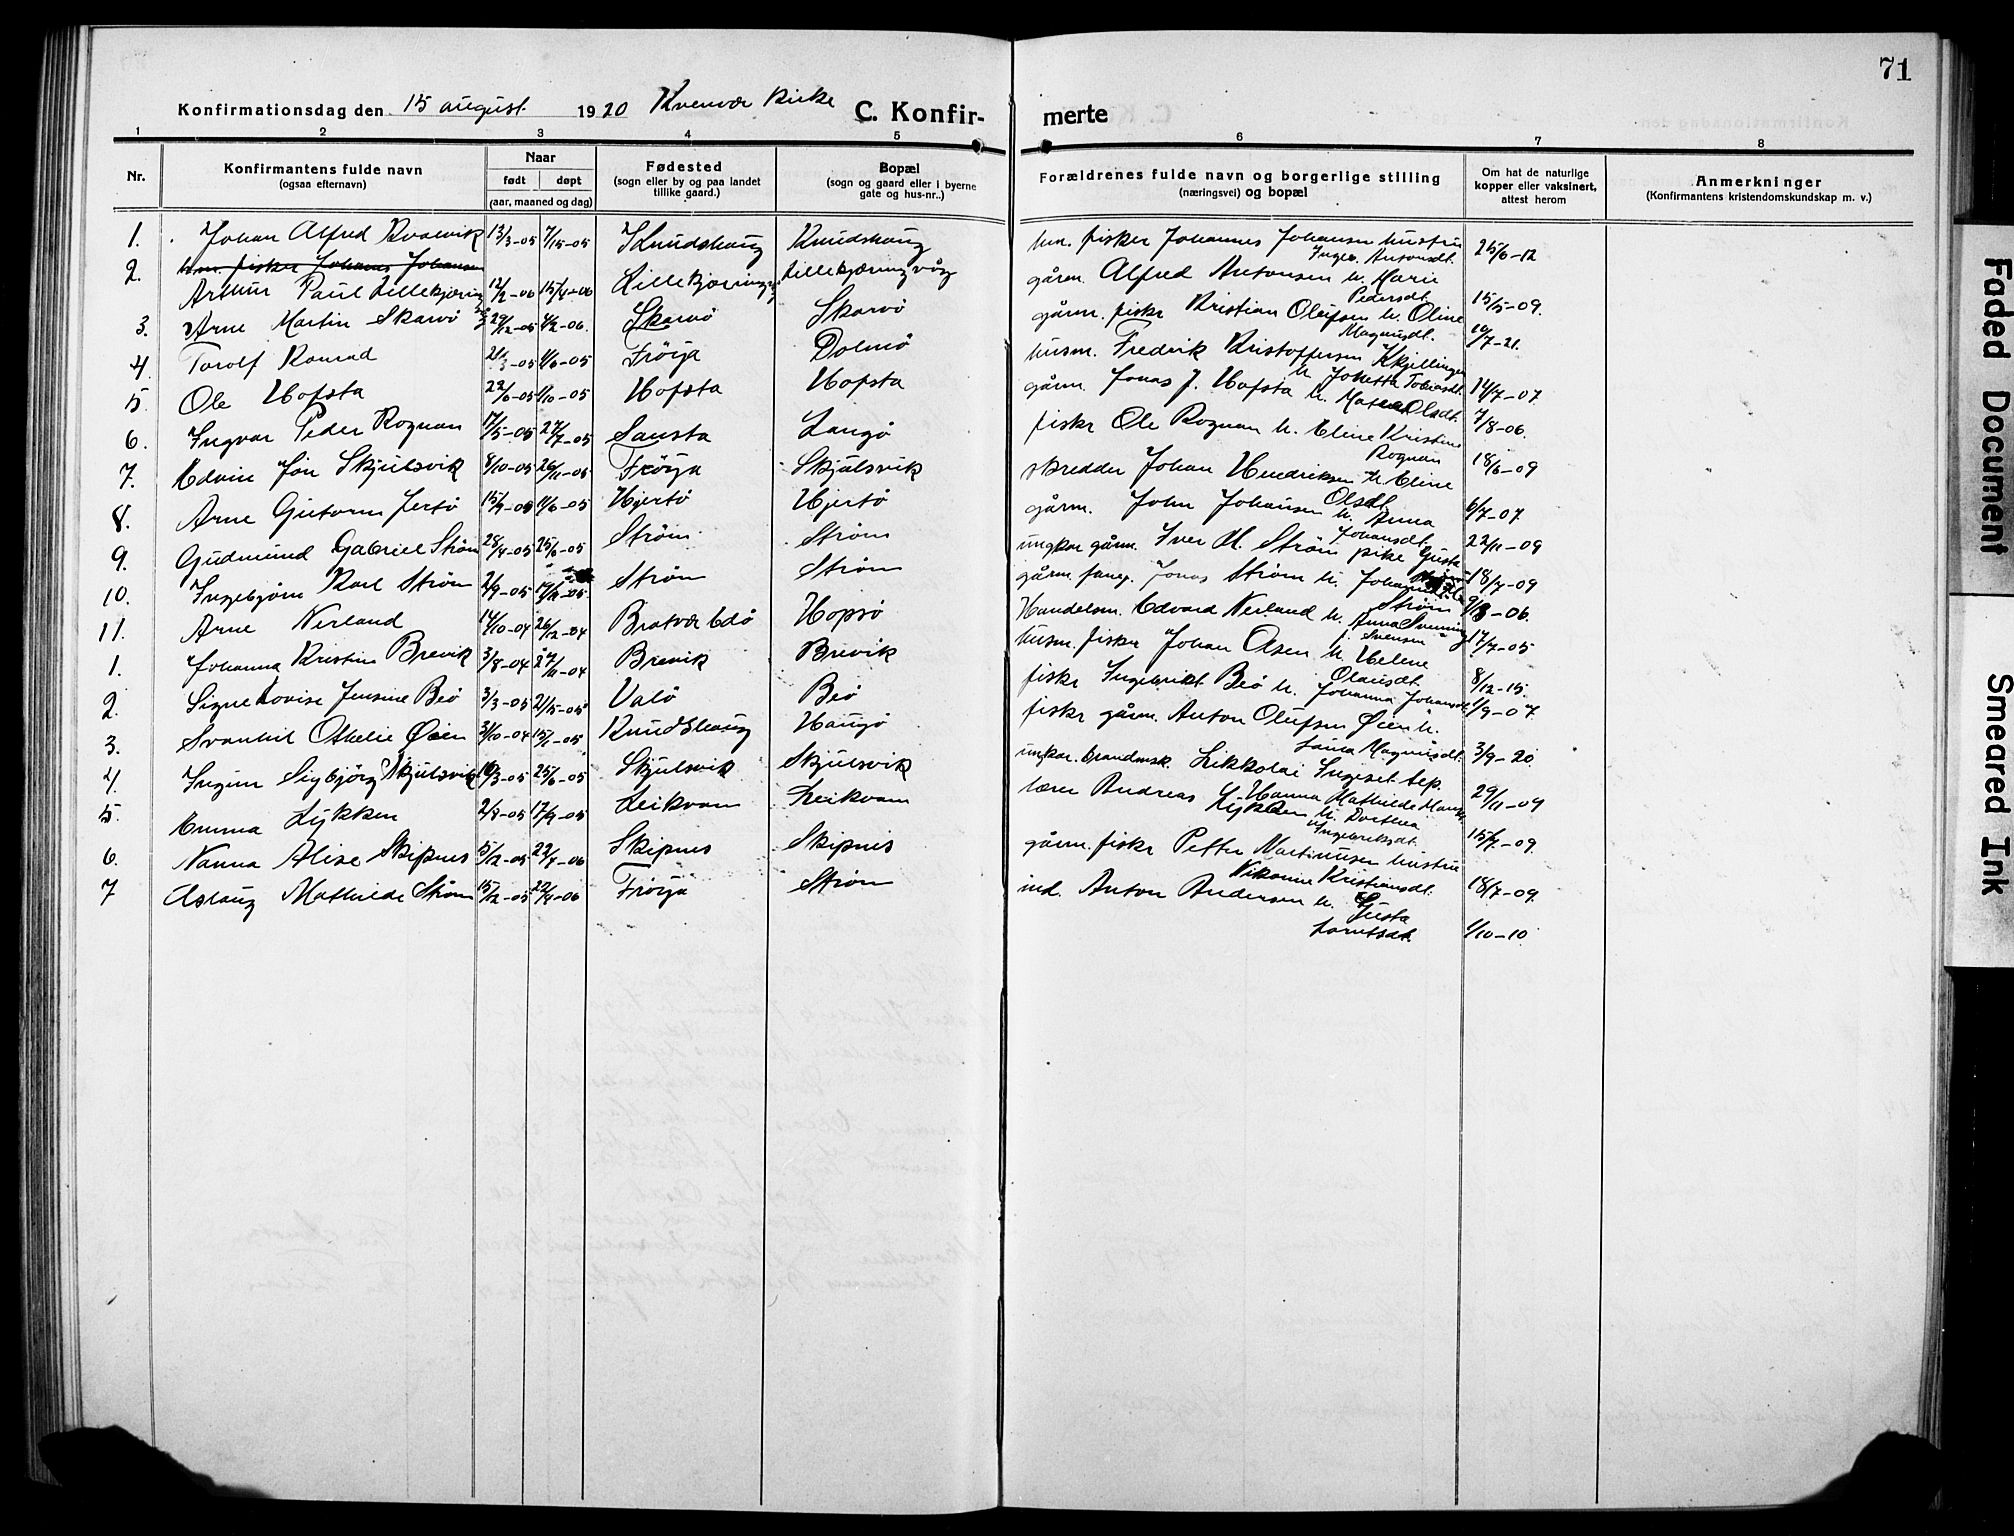 71
Konfirmationsdag den 15 august 1920 Kvenvær Kirke C. Konfir-
merte
1 2 3 4 5 6 7 8
Nr. Konfirmantens fulde navn (ogsaa efternavn) Naar født døpt (aar, maaned og dag) Fødested (sogn eller by og paa landet tillike gaard.) Bopæl (sogn og gaard eller i byerne gate og hus-nr..) Forældrenes fulde navn og borgerlige stilling (næringsvei) og bopæl Om hat de naturlige kopper eller vaksinert, attest herom Anmerkninger (Konfirmantens kristendomskundskap m. v.)
1. Johan Alfred Kvalvik 13/3-05 Knudshaug Knudshaug fisker Johannes Johansen hustru Inger Antonsdt. 25/6-12
2. fisker Johans Johansen
Arthur Paul Lillekjæringvåg 12/2-06 15/4-06 Lillekjæringvåg Lillekjæringvåg gårm. Alfred Antonsen h. Marie Pedersdt. 15/5-09.
3. Arne Martin Skarvø 29/12-05 4/2-06. Skarvø Skarvø gårm. fisker Kristian Olufsen h. Oline Magnusdt. 10/7-21.
4. Torolf Konrad 21/3-05 4/6-05 Frøya Dolmø husm. Fredrik Kristoffersen Kjellingen h. Johetta Tobiasdt. 14/7-07.
5. Ole Hofsta 22/6-05 1/10-05 Hofsta Hofsta gårm. Jonas J. Hofsta h. Olsdt. 7/8-06.
6. Ingvar Peder Rognan 17/5-05 27/7-05 Sausta Langø fisker Ole Rognan h. Eline Kristine Rognan 18/6-09
7. Edvin Jon Skjulsvik 8/10-05 26/11-05 Frøya Skjulsvik skredder Johan Hendriksen h. Eline Olsdt. 6/7-07.
8. Arne Gutorm Jertø 11/6-05 Hjertø Hjertø gårm. John Johansen h. Anna Johansdt. 22/11-09
9. Gudmund Gabriel Strøm 28/4-05 25/6-05 Strøm Strøm ungkar gårm. Iver H. Strøm pike Gusta 18/7-09
10. Ingebjørn Karl Strøm 2/9-05 Strøm Strøm gårm. Jonas Strøm h. Strøm 9/8-06.
11. Arne Nerland 14/10-04 26/12-04 Bratvær Edø Hopsø Handelsm. Edvard Nerland h. Anna f. Svensen 17/7-05
1. Johanna Kristine Brevik 3/8-04 27/11-04 Brevik Brevik husm. fisker Johan Olsen h. Helene Olausdt. 8/12-15.
2. Signe Lovise Jensine Beø 3/3-05 21/5-05 Valø Beø fisker Ingebrikt Beø h. Johanna Johansdt. 1/9-07.
3. Svanhil Othelie Øien 31/10-04 15/1-05 Knudshaug Haugø fisker gårm. Anton Olufsen Øien h. Laura Magnusdt. 3/9-20.
4. Ingun Sigbjørg Skjulsvik 10/3-05 25/6-05 Skjulsvik Skjulsvik ungkar. brandmsk. Hanna Mathilde 29/11-09
5. Emma Lykken 2/8-05 17/9-05 Leikvam Leikvam lærer Andreas Lykken h. Dorthea Ingebriksdt. 15/7-09.
6. Nanna Alise Skipnes 5/12-05 22/4-06 Skipnes Skipnes gårm. fisker Petter Martinusen hustru Nikoline Kristiansdt. 18/7-09.
7 Aslaug Mathilde Strøm 15/12-05 22/4-06 Frøya Strøm ind. Anton Andersen h. Gusta Lorntsdt. 1/10-10
Faded Document
Smeared Ink